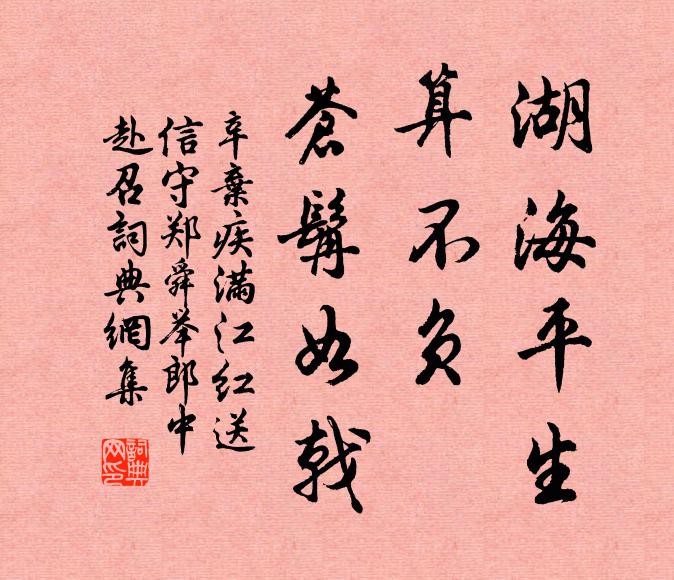 湖海平生
算不负
蒼髯如戟
辛棄疾滿江红送
信守郑舜举郎中
赴召詞典網集
詞典
网印